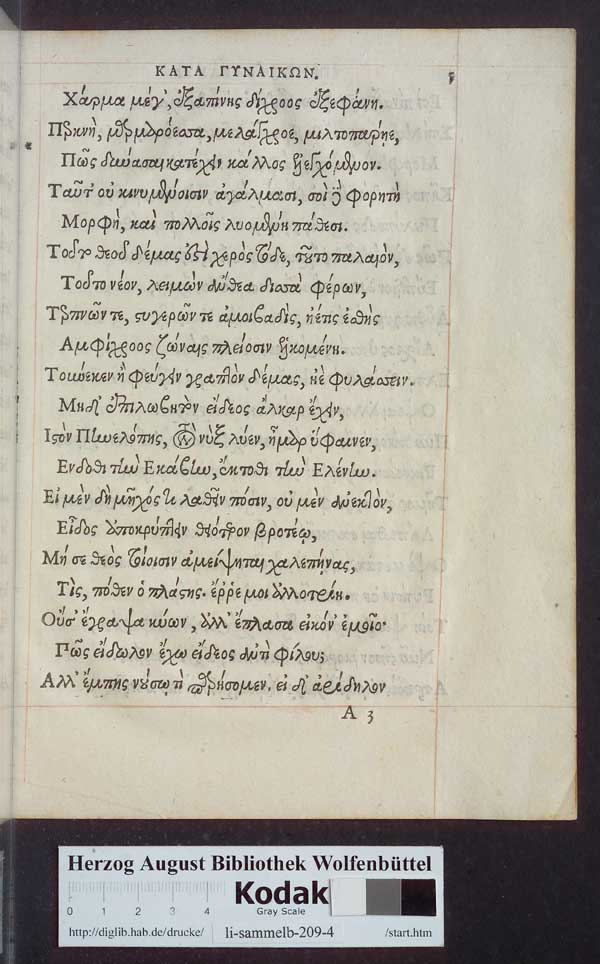 ΚΑΤΑ ΓΥΝΑΙΚΩΝ. 5
Χάρμα μέγ', ἐξαπίνης δίχροος ἐξεφάνη.
Πυκνὴ, μυρμυρόεσσα, μελάγχροε, μιλτοπάρῃε,
Πῶς δύνασαι κατέχειν κάλλος
Ταῦτ' οὐ κινυμένοισιν ἀγάλμασι, σοὶ φορητὴ
Μορφὴ, καὶ πολλοῖς λυομένη πάθεσι.
Τοῦτο θεοῦ δέμας ἐστὶ χερὸς τόδε, τοῦτο παλαιὸν,
Τοῦτο νέον, λειμὼν ἄνθεα δισσὰ φέρων,
Τερπνῶν τε, στυγερῶν τε ἀμοιβαδὶς,
Αμφίχροος ζώναις πλείοσιν
Τοὔνεκεν ἢ φεύγειν γραπτὸν δέμας, ἠὲ φυλάσσειν.
Μηδ' ἐπιλωβητὸν εἴδεος ἄλκαρ ἔχειν,
Ιστὸν Πηνελόπης, νὺξ λύεν, ἦμαρ ὕφαινεν,
Ενδοθι τὴν Εκάβην, ἔκτοθι τὴν Ελένην.
Εἰ μὲν δὴ μῆχός κε λαθεῖν πόσιν, οὐ μὲν ἀνεκτὸν,
Εἶδος ἀποκρύπτειν θειότερον βροτέῳ,
Μή σε θεὸς τοίοισιν ἀμείψηται χαλεπήνας,
Τὶς, πόθεν ὁ πλάστης. ἔῤῥέ μοι ἀλλοτρίη.
Οὔσ' ἔγραψα κύων, ἀλλ' ἔπλασα εἰκόν' ἐμοῖο·
Πῶς εἴδωλον ἔχω εἴδεος ἀντὶ φίλου;
Αλλ' ἔμπης νόσῳ τὶ εἰ δ' ἀρίδηλον
A 3
Herzog August Bibliothek Wolfenbüttel
Kodak
Gray Scale
0 1 2 3 4
http://diglib.hab.de/drucke/ li-sammelb-209-4 /start.htm